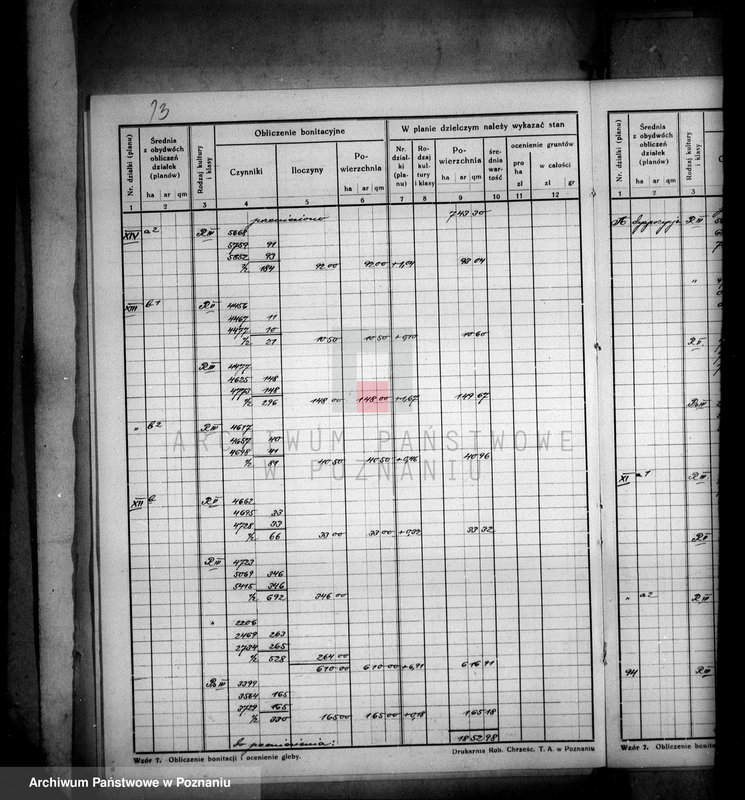 73
Nr. działki (planu)
Średnia z obydwóch obliczeń działek (planów)
ha ar qm
Rodzaj kultury i klasy
Obliczenie bonitacyjne
Czynniki
Iloczyny
Powierzchnia
ha ar qm
W planie dzielczym należy wykazać stan
Nr. działki (planu)
Rodzaj kultury i klasy
Powierzchnia
ha ar qm
średnia wartość
ocenienie gruntów
pro ha zł
w całości
zł gr
1 2 3 4 5 6 7 8 9 10 11 12
przeniesiono 743 30
XIV a2 R III 5668
5759 91
5852 93
½ 184 92 00 92 00 +1,04 93 04
XIII b1 R II 4456
4467 11
4477 10
½ 21 10 50 10 50 +0,10 10 60
R III 4477
4625 148
4773 148
½ 296 148 00 148 00 +1,67 149 67
" b2 R III 4617
4657 40
4698 41
½ 81 40 50 40 50 +0,46 40 96
XII b R II 4662
4695 33
4728 33
½ 66 33 00 33 00 +0,32 33 32
R III 4723
5069 346
5415 346
½ 692 346 00
" 2206
2469 263
2734 265
½ 528 264 00
610 00 610 00 +6,91 616 91
Ps III 3399
3564 165
3729 165
½ 330 165 00 165 00 +0,18 165 18
Do przeniesienia: 1852 98
Wzór 7. Obliczenie bonitacji i ocenienie gleby.
Drukarnia Rob. Chrześc. T. A. w Poznaniu
Nr. działki (planu)
Średnia z obydwóch obliczeń działek (planów)
ha ar qm
Rodzaj kultury i klasy
1 2 3
R III
"
R II
XI a1 R III
R II
" a2 R III
94 R III
Wzór 7. Obliczenie bonita
ARCHIWUM PAŃSTWOWE
W POZNANIU
Archiwum Państwowe w Poznaniu